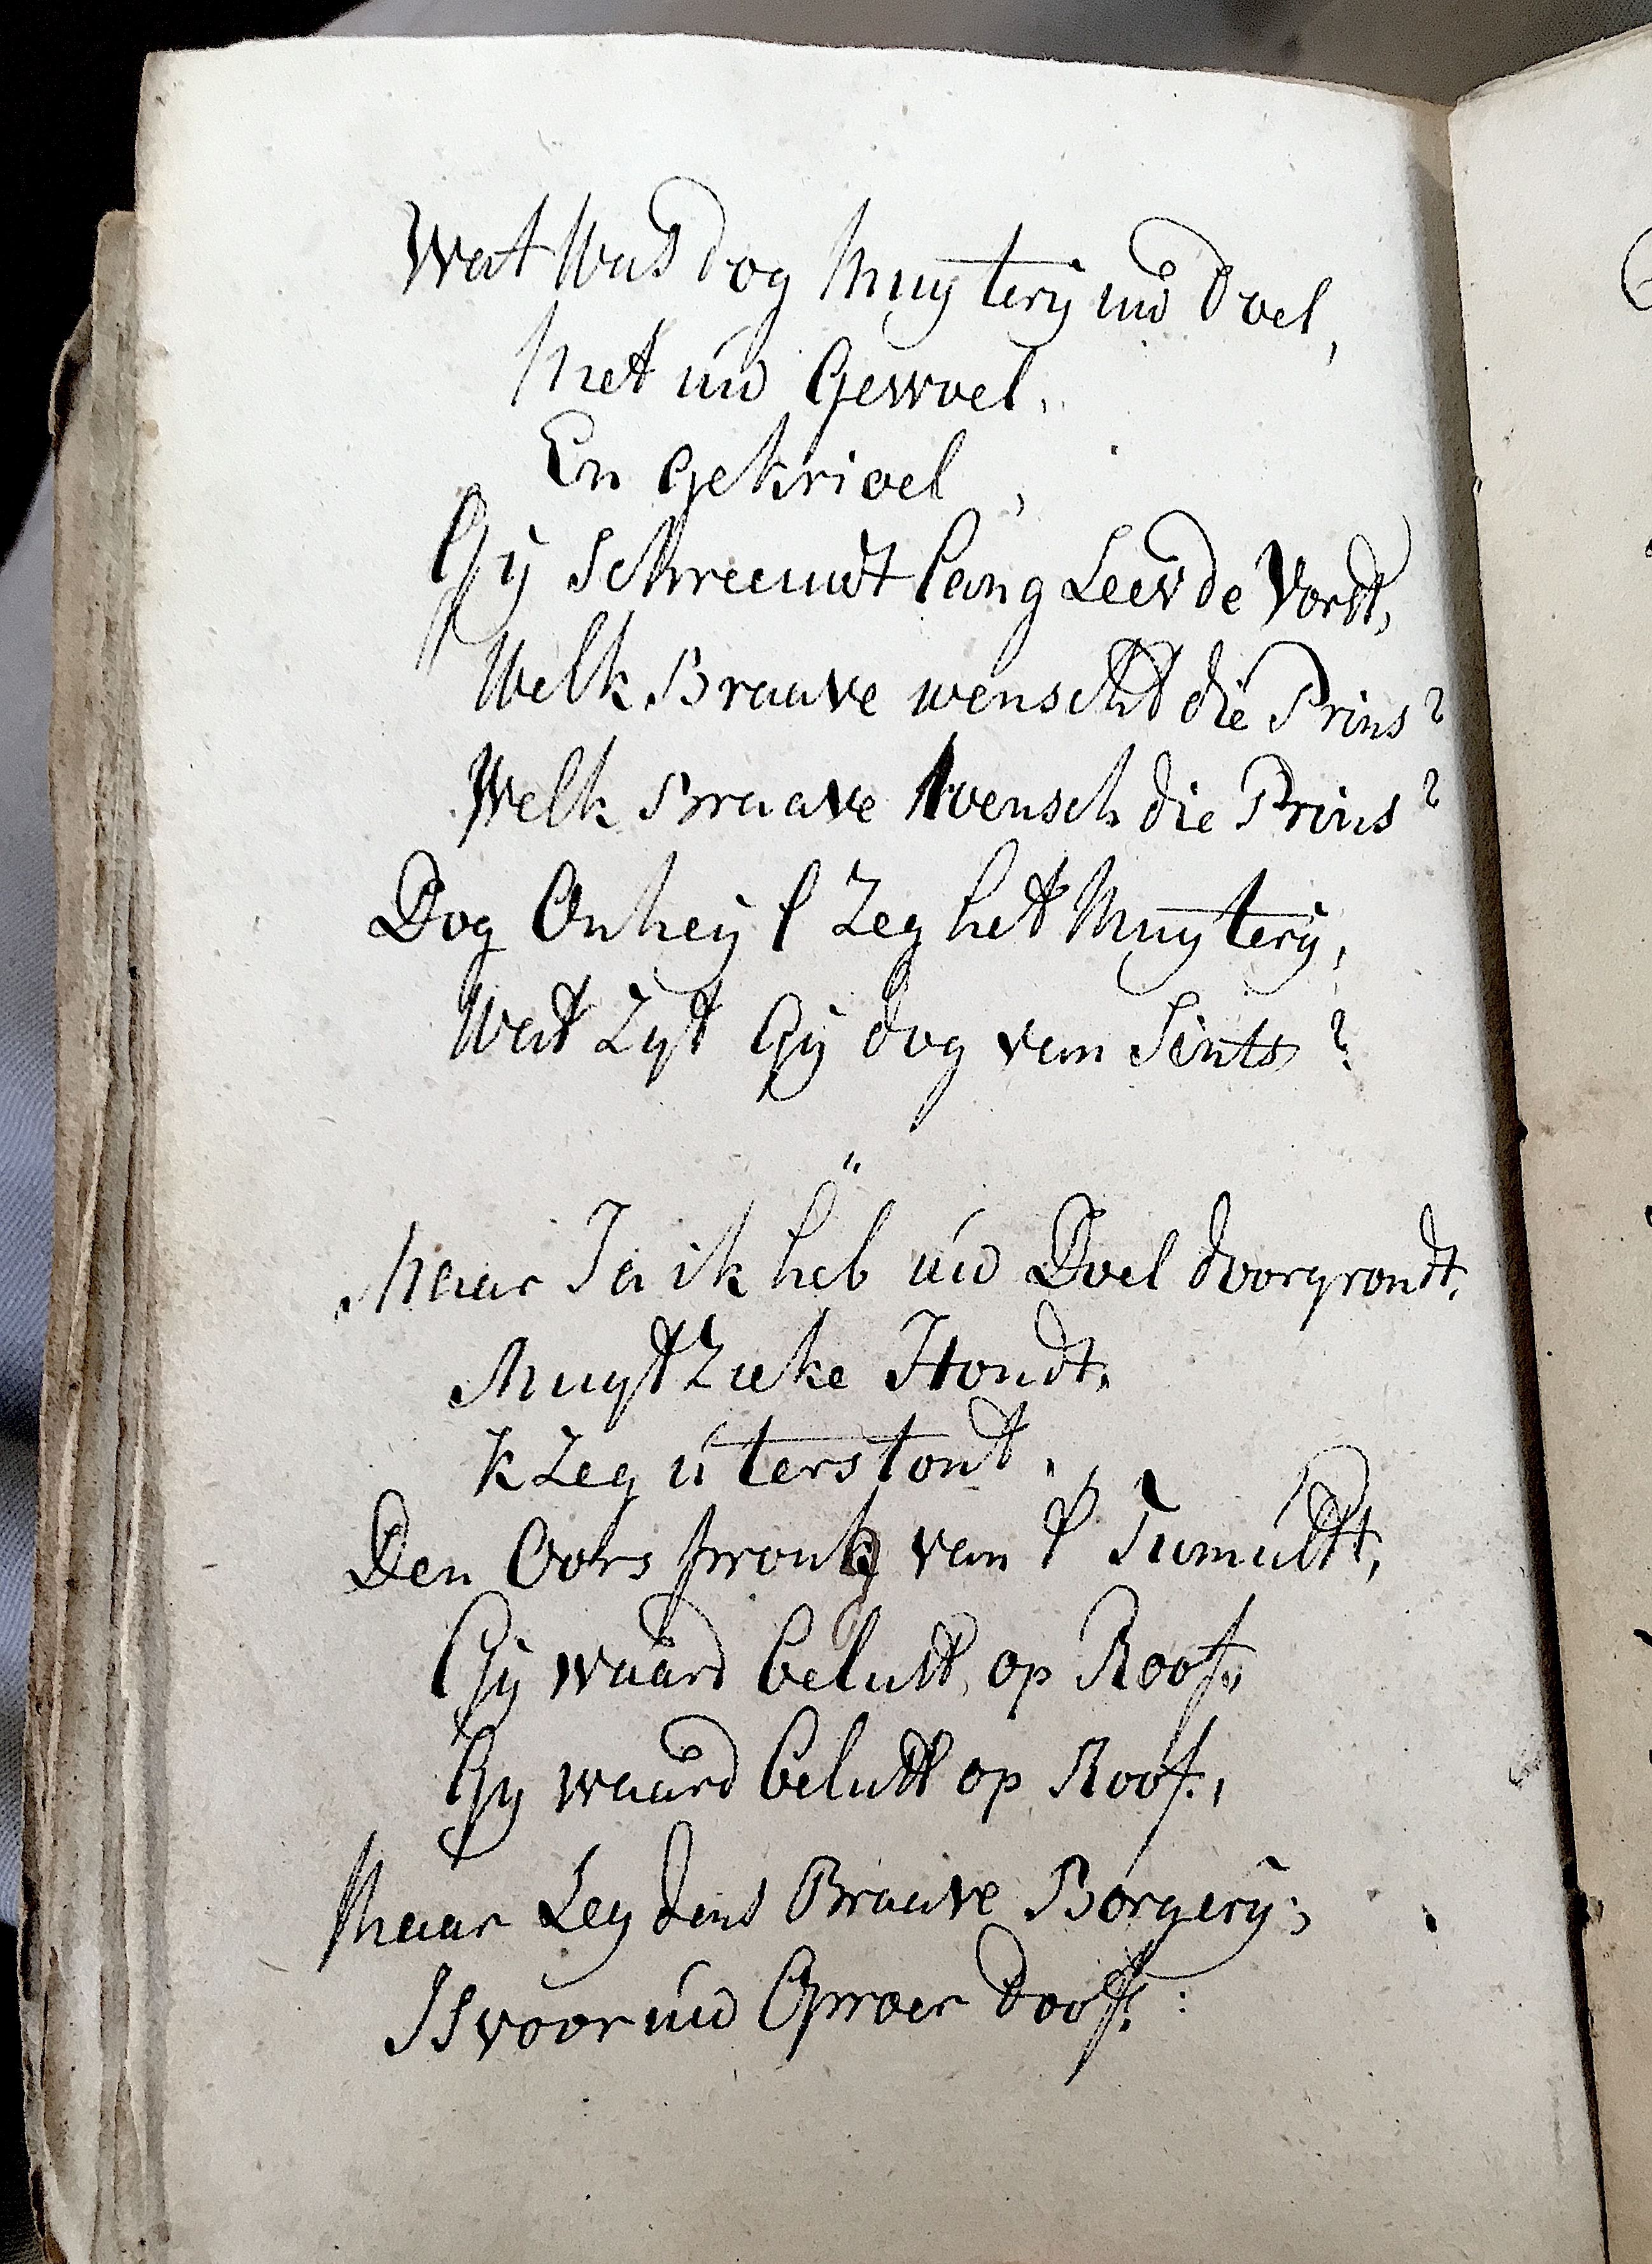 Wat Was dog Muyterij uw Doel,
Met uw Gewoel,
En gekrioel,
Gij Schreeuwt lang Leev de Vorst,
Welk Braave wenscht die Prins?
Welk Braave wensch die Prins?
Dog Onheyl Zeg het Muyterij,
Wat Zyt Gij dog van Sints?
"
Maar Ja ik heb uw Doel doorgrondt,
Muyt Zieke Hondt,
k Zeg u terstont,
Den Oorspronk van t Tumult,
Gij waard belust op Roof,
Gy waard belust op Roof,
Maar Leydens Braave Borgerij;
Is voor uw Oproer Doof: